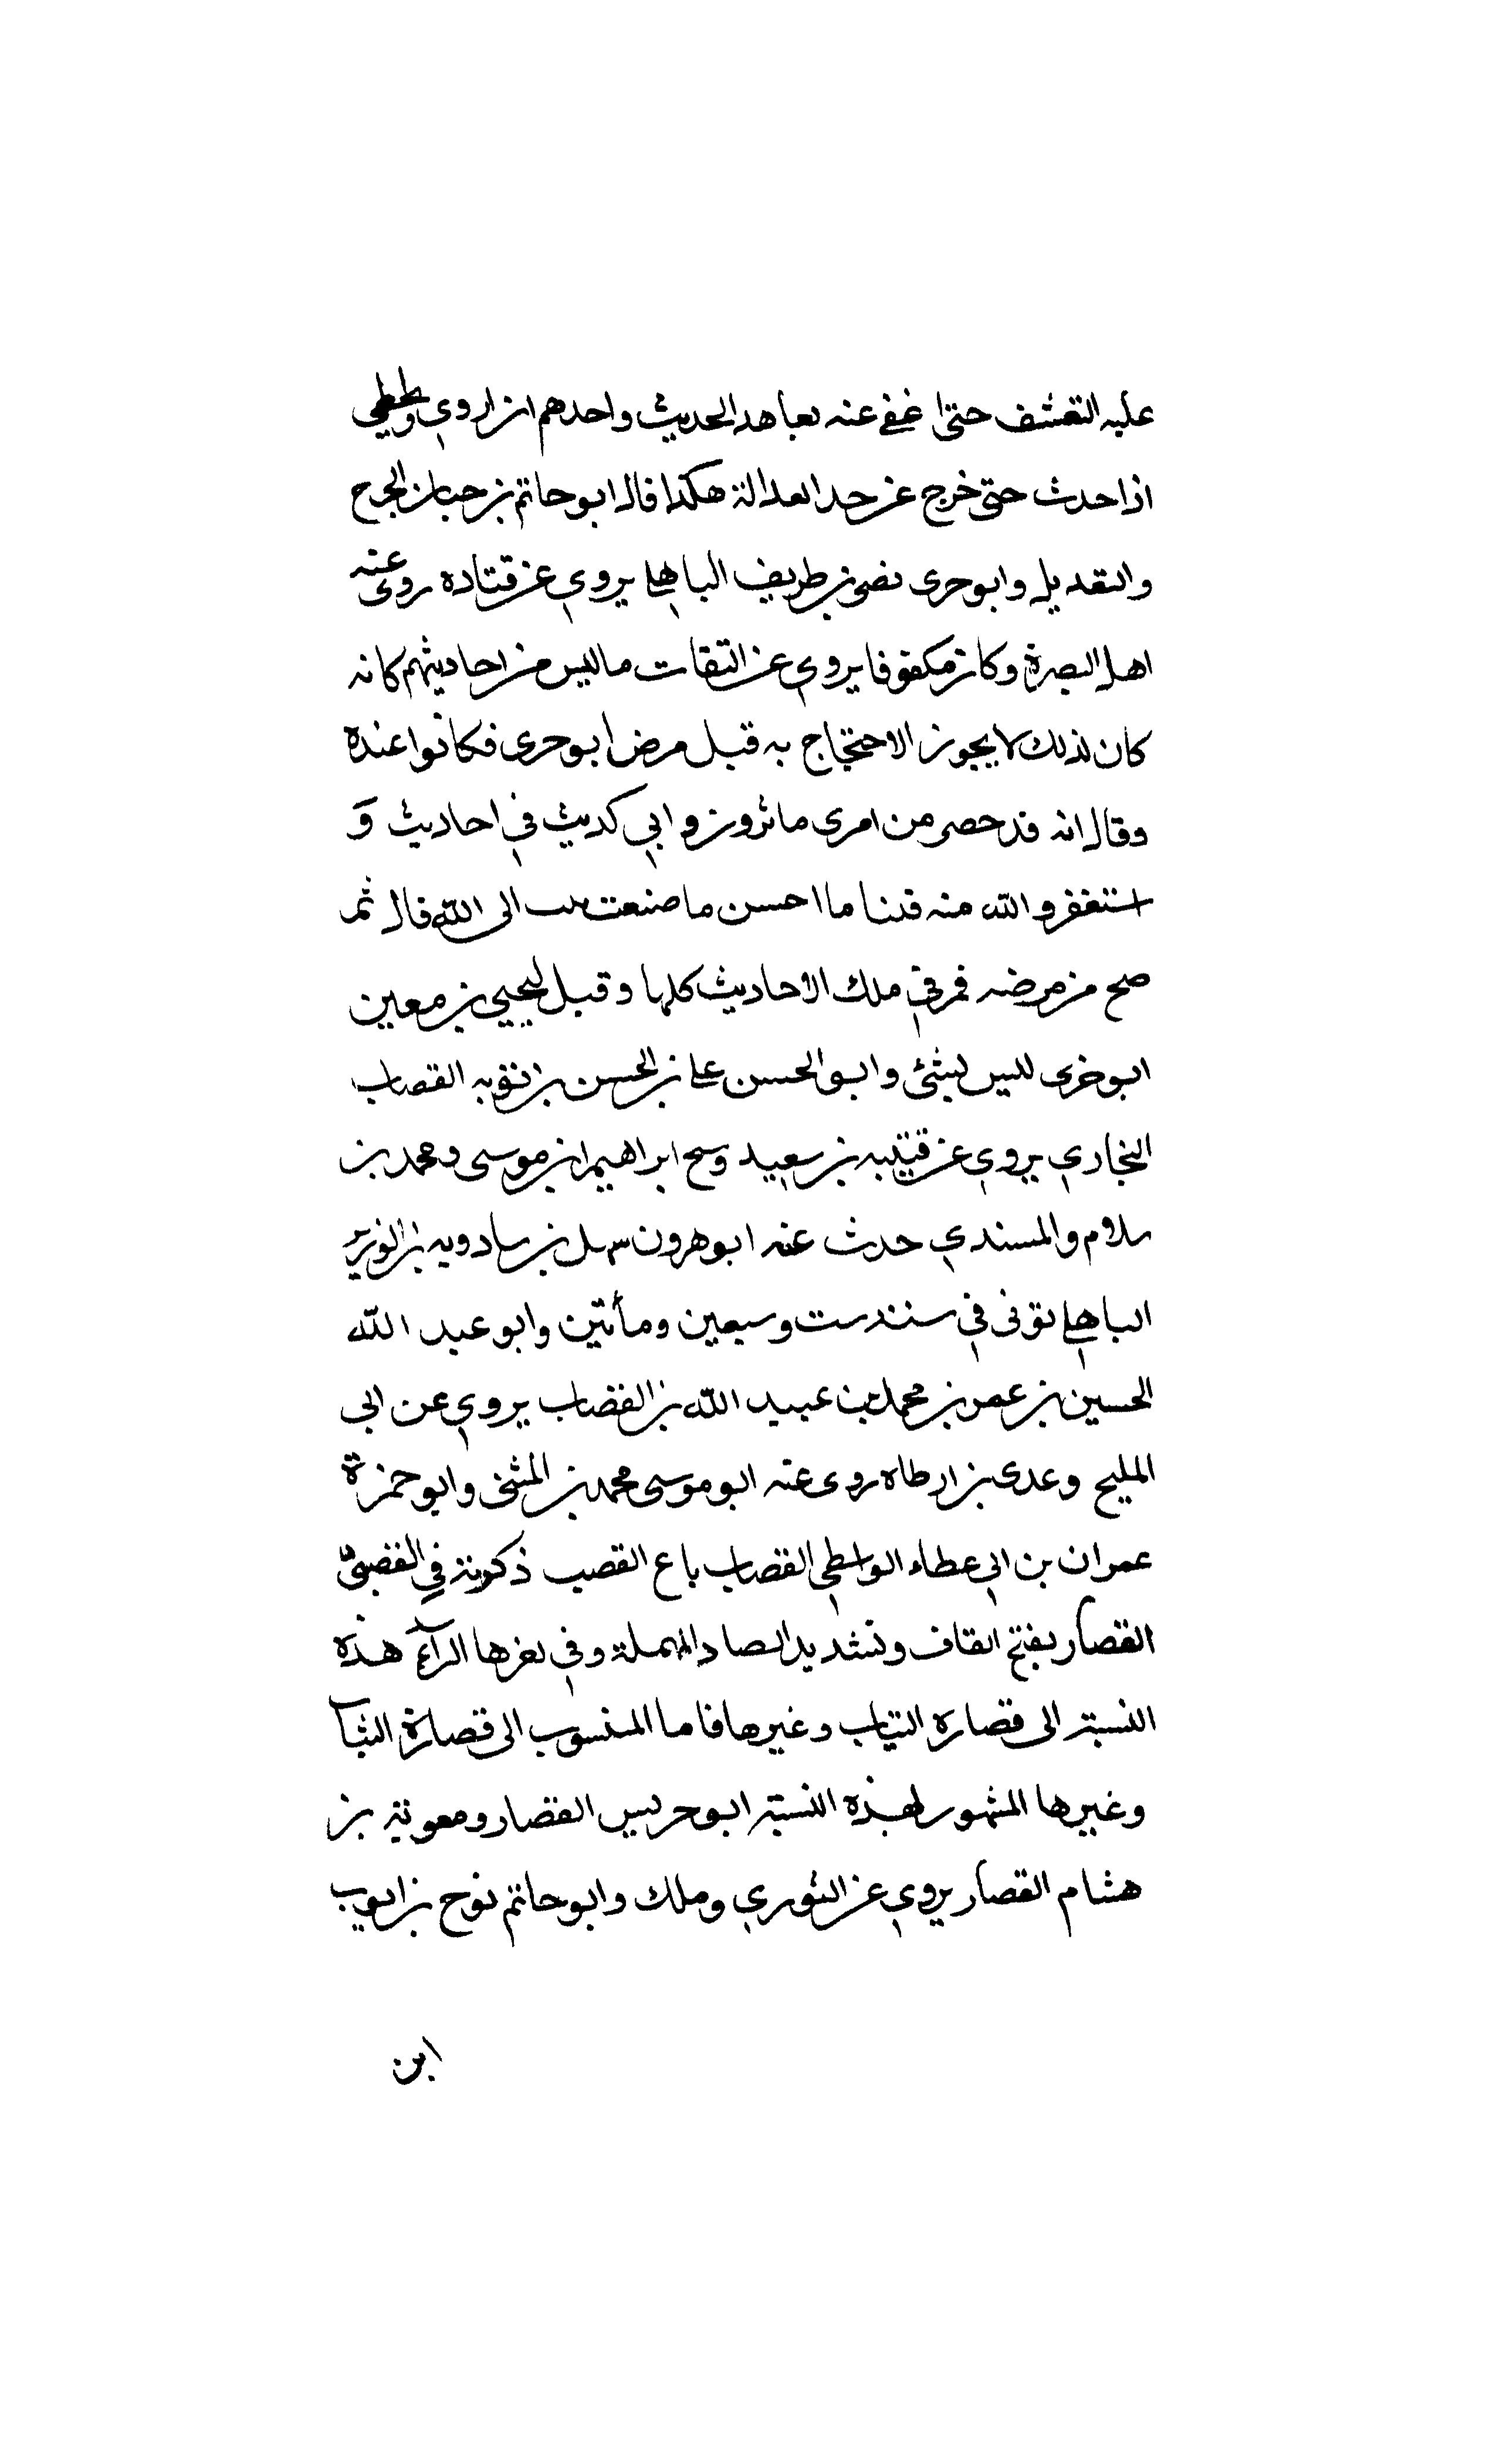 عليه التقشف حتى اغضي عنه تعاهد الحديث واحدهم ان اروي ويخطي
اذا حدث حتى خرج عن حد العدالة هكذا قال ابو حاتم بن حبان الجرح
والتعديل وابو حرى نصر بن طريف الباهلي يروي عن قتاده روى عنه
اهل البصرة وكان مكفوفا يروي عن الثقات ما ليس من احاديثهم كانه
كان لذلك لا يجوز الاحتجاج به قيل مرض ابو حرى فكانوا عنده
وقال انه قد حضر من امرى ما ترون و اني كديث في احاديث وَ
استغفر والله منه قلنا ما احسن ما صنعت الى الله قال ثم
صح من مرضه فمر في ملك الاحاديث كلها وقيل ليحيي بن معين
ابو خرى ليس لبشئ وابو الحسن علي بن الحسن بن القصاب
البخاري يروي عن قتيبه بن سعيد وسح ابراهيم ابن موسى ومحمد بن
سلام والمسندي حدث عنه ابو هرون سهل بن سادويه بن
الباهلي توفى في سنة ست وسبعين ومأتين وابو عبد الله
الحسين بن عمر بن محمد بن عبيد الله بن القصاب يروي عن ابى
المليح وعدى بن ارطاه روى عنه ابو موسى محمد بن المثنى وابو حمزة
عمران بن ابي عطاء الواسطي القصاب باع القصب ذكرته في القصبى
القصار بفتح القاف وتشديد الصاد المهملة وفي اخرها الرآء هذه
النسبة الى قصاره الثياب وغيرها فاما المنسوب الى قصارة الثياب
وغيرها المشهور لهذه النسبة ابو حريس القصار ومعوية بن
هشام القصار يروي عن الثوري وملك وابو حاتم نوح بن ايوب
ابن